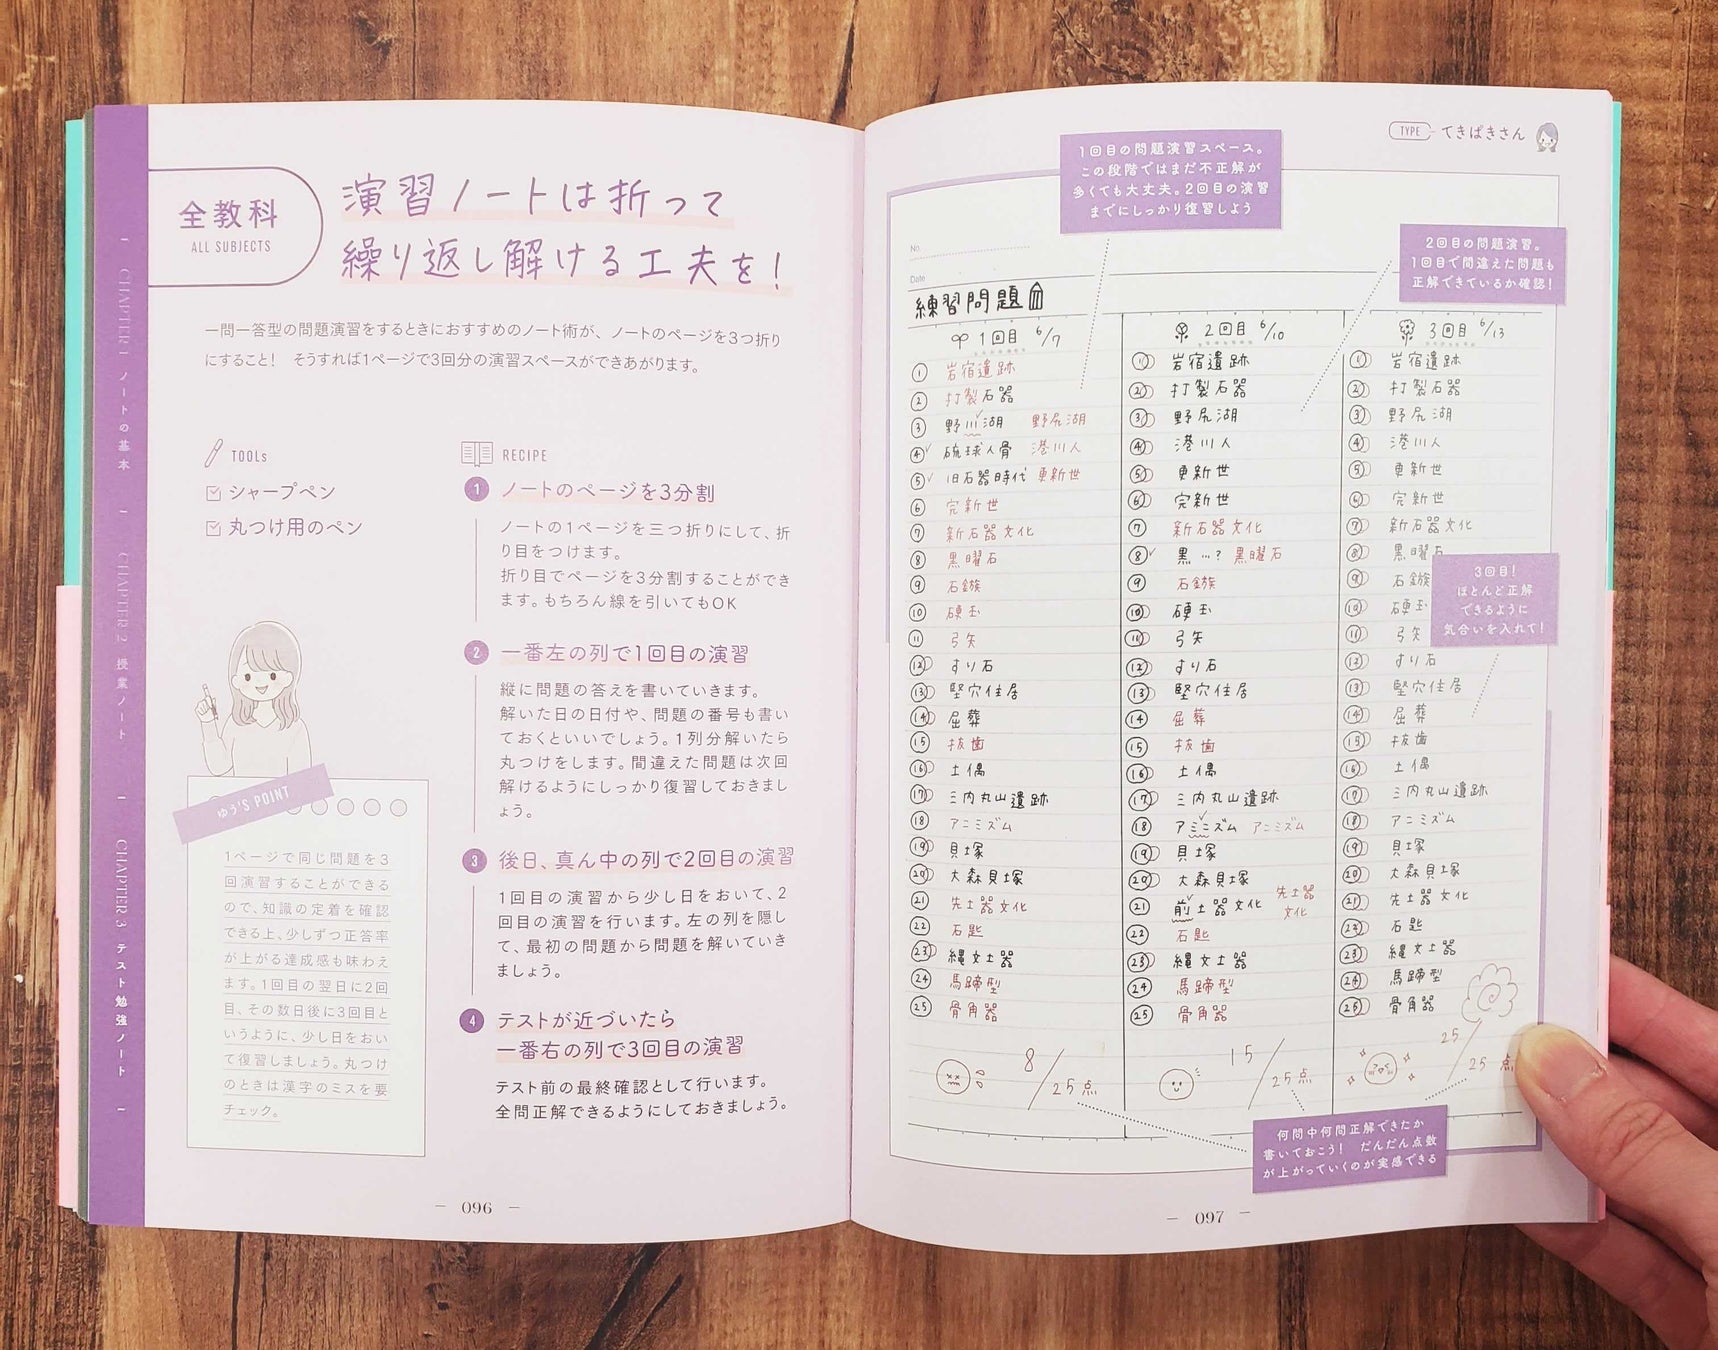 全教科
ALL SUBJECTS
演習ノートは折って
繰り返し解ける工夫を!
一問一答型の問題演習をするときにおすすめのノート術が、ノートのページを3つ折り
にすること! そうすれば1ページで3回分の演習スペースができあがります。
TOOLs
シャープペン
丸つけ用のペン
RECIPE
1 ノートのページを3分割
ノートの1ページを三つ折りにして、折
り目をつけます。
折り目でページを3分割することができ
ます。もちろん線を引いてもOK
2 一番左の列で1回目の演習
縦に問題の答えを書いていきます。
解いた日の日付や、問題の番号も書い
ておくといいでしょう。1列分解いたら
丸つけをします。間違えた問題は次回
解けるようにしっかり復習しておきまし
ょう。
3 後日、真ん中の列で2回目の演習
1回目の演習から少し日をおいて、2
回目の演習を行います。左の列を隠し
て、最初の問題から問題を解いていき
ましょう。
4 テストが近づいたら
一番右の列で3回目の演習
テスト前の最終確認として行います。
全問正解できるようにしておきましょう。
ゆう'S POINT
1ページで同じ問題を3
回演習することができる
ので、知識の定着を確認
できる上、少しずつ正答率
が上がる達成感も味わえ
ます。1回目の翌日に2回
目、その数日後に3回目と
いうように、少し日をおい
て復習しましょう。丸つけ
のときは漢字のミスを要
チェック。
CHAPTER 1 ノートの基本
CHAPTER 2 授業ノート
CHAPTER 3 テスト勉強ノート
096
TYPE てきぱきさん
1回目の問題演習スペース。
この段階ではまだ不正解が
多くても大丈夫。2回目の演習
までにしっかり復習しよう
2回目の問題演習。
1回目で間違えた問題も
正解できているか確認!
No.
Date
練習問題
1回目 6/7
① 岩宿遺跡
② 打製石器
③ 野川湖 野尻湖
④ 硫球人骨 港川人
⑤ 旧石器時代 更新世
⑥ 完新世
⑦ 新石器文化
⑧ 黒曜石
⑨ 石鏃
⑩ 硬玉
⑪ 弓矢
⑫ すり石
⑬ 竪穴住居
⑭ 屈葬
⑮ 抜歯
⑯ 土偶
⑰ 三内丸山遺跡
⑱ アニミズム
⑲ 貝塚
⑳ 大森貝塚
㉑ 先土器文化
㉒ 石匙
㉓ 縄文土器
㉔ 馬蹄型
㉕ 骨角器
8/25点
2回目 6/10
① 岩宿遺跡
② 打製石器
③ 野尻湖
④ 港川人
⑤ 更新世
⑥ 完新世
⑦ 新石器文化
⑧ 黒…? 黒曜石
⑨ 石鏃
⑩ 硬玉
⑪ 弓矢
⑫ すり石
⑬ 竪穴住居
⑭ 屈葬
⑮ 抜歯
⑯ 土偶
⑰ 三内丸山遺跡
⑱ アミニズム アニミズム
⑲ 貝塚
⑳ 大森貝塚
㉑ 前土器文化 先土器
文化
㉒ 石匙
㉓ 縄文土器
㉔ 馬蹄型
㉕ 骨角器
15/25点
3回目 6/13
① 岩宿遺跡
② 打製石器
③ 野尻湖
④ 港川人
⑤ 更新世
⑥ 完新世
⑦ 新石器文化
⑧ 黒曜石
⑨ 石鏃
⑩ 硬玉
⑪ 弓矢
⑫ すり石
⑬ 竪穴住居
⑭ 屈葬
⑮ 抜歯
⑯ 土偶
⑰ 三内丸山遺跡
⑱ アニミズム
⑲ 貝塚
⑳ 大森貝塚
㉑ 先土器文化
㉒ 石匙
㉓ 縄文土器
㉔ 馬蹄型
㉕ 骨角器
25/25点
3回目!
ほとんど正解
できるように
気合いを入れて!
何問中何問正解できたか
書いておこう! だんだん点数
が上がっていくのが実感できる
097